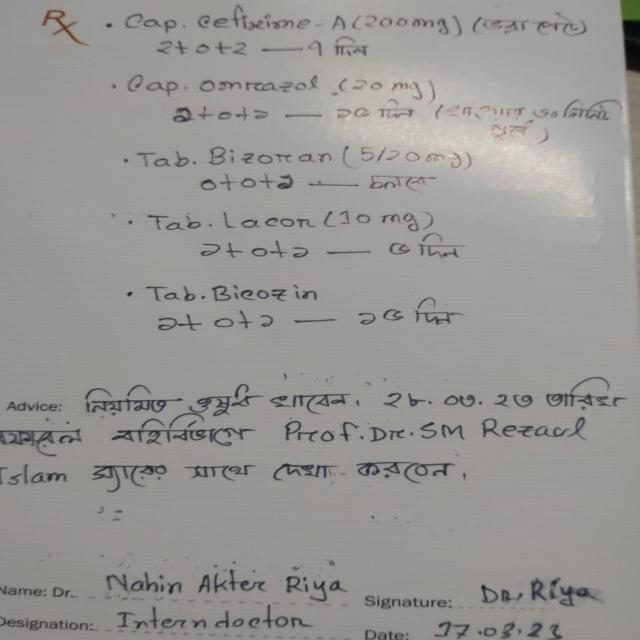 Rx
• Cap. Cefixime-A (200mg) (ভরা পেটে)
২+০+২ — ৭ দিন
• Cap. Omrazol (20 mg)
১+০+১ — ১৫ দিন (খাওয়ার ৩০ মিনিট পূর্বে)
• Tab. Bizoran (5/20mg)
০+০+১ — চলবে
• Tab. Lacon (10 mg)
১+০+১ — ৫ দিন
• Tab. Bicozin
১+০+১ — ১৫ দিন
Advice: নিয়মিত ওষুধ খাবেন। ২৮.০৩.২৩ তারিখ
বহির্বিভাগে Prof. Dr. SM Rezaul
Islam স্যারের সাথে দেখা করবেন।
Name: Dr. Nahin Akter Riya
Signature: Dr. Riya
Designation: Intern doctor
Date: 17.03.23